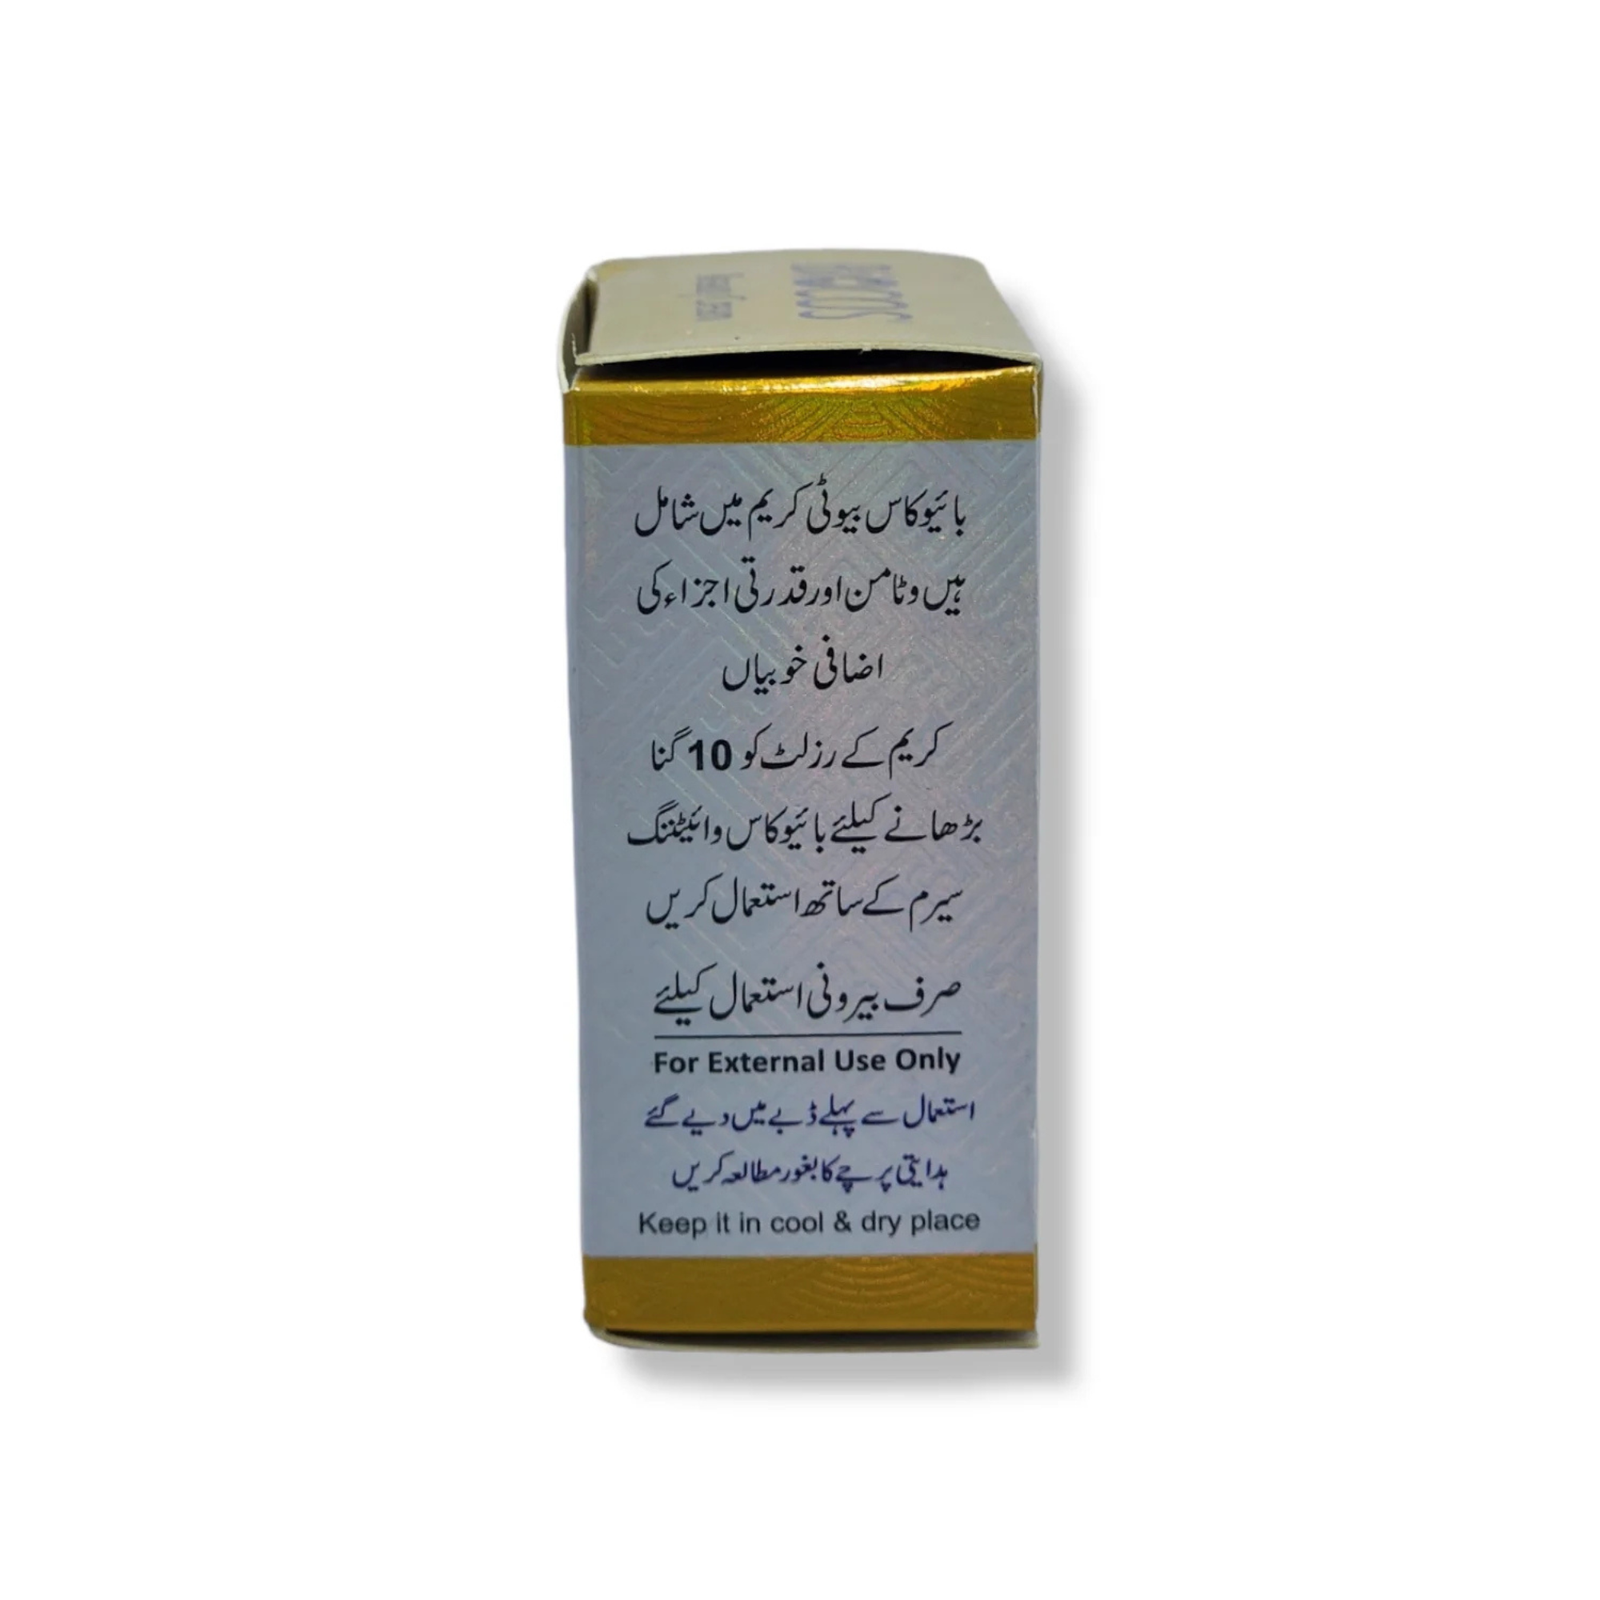 بائیوکاس بیوٹی کریم میں شامل
ہیں وٹامن اور قدرتی اجزاء کی
اضافی خوبیاں
کریم کے رزلٹ کو 10 گنا
بڑھانے کیلئے بائیوکاس وائیٹننگ
سیرم کے ساتھ استعمال کریں
صرف بیرونی استعمال کیلئے
For External Use Only
استعمال سے پہلے ڈبے میں دیے گئے
ہدایتی پرچے کا بغور مطالعہ کریں
Keep it in cool & dry place